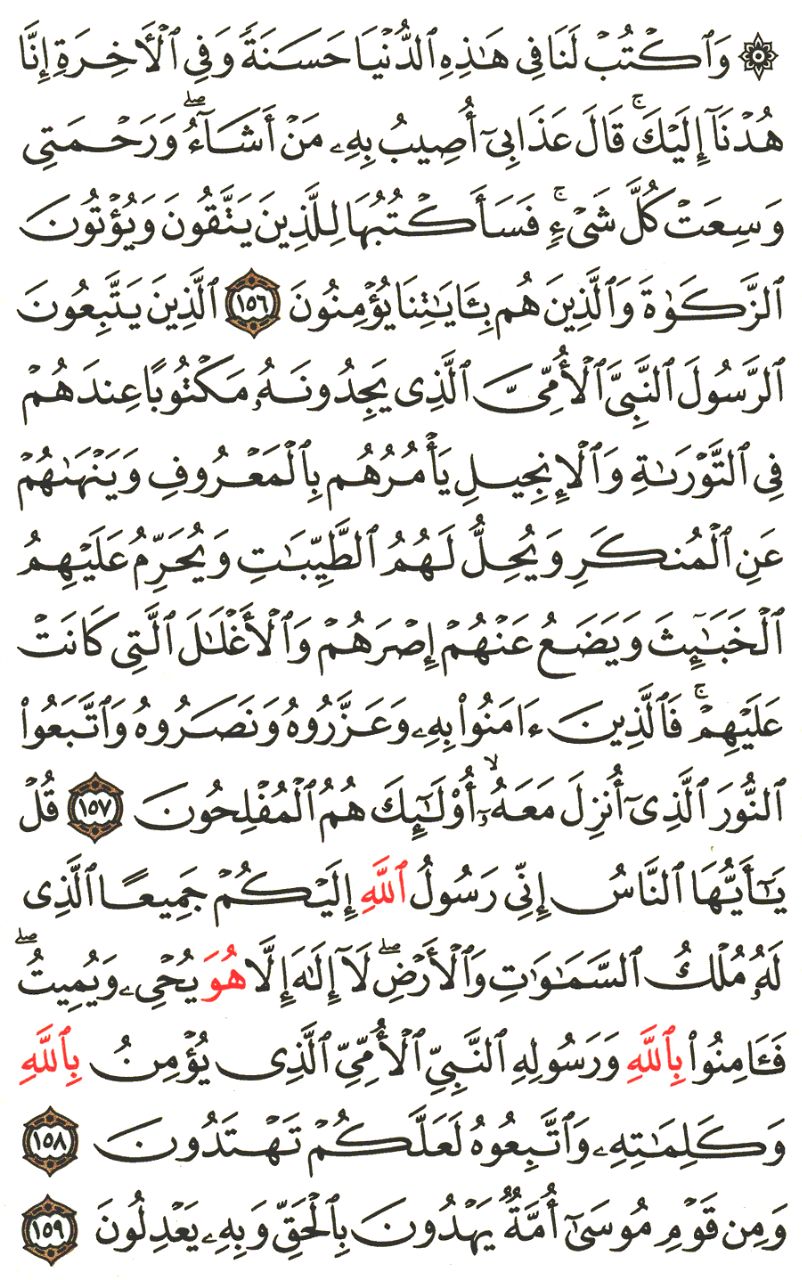 ۞ وَٱكۡتُبۡ لَنَا فِي هَٰذِهِ ٱلدُّنۡيَا حَسَنَةٗ وَفِي ٱلۡأٓخِرَةِ إِنَّا
هُدۡنَآ إِلَيۡكَۚ قَالَ عَذَابِيٓ أُصِيبُ بِهِۦ مَنۡ أَشَآءُۖ وَرَحۡمَتِي
وَسِعَتۡ كُلَّ شَيۡءٖۚ فَسَأَكۡتُبُهَا لِلَّذِينَ يَتَّقُونَ وَيُؤۡتُونَ
ٱلزَّكَوٰةَ وَٱلَّذِينَ هُم بِـَٔايَٰتِنَا يُؤۡمِنُونَ ١٥٦ ٱلَّذِينَ يَتَّبِعُونَ
ٱلرَّسُولَ ٱلنَّبِيَّ ٱلۡأُمِّيَّ ٱلَّذِي يَجِدُونَهُۥ مَكۡتُوبًا عِندَهُمۡ
فِي ٱلتَّوۡرَىٰةِ وَٱلۡإِنجِيلِ يَأۡمُرُهُم بِٱلۡمَعۡرُوفِ وَيَنۡهَىٰهُمۡ
عَنِ ٱلۡمُنكَرِ وَيُحِلُّ لَهُمُ ٱلطَّيِّبَٰتِ وَيُحَرِّمُ عَلَيۡهِمُ
ٱلۡخَبَٰٓئِثَ وَيَضَعُ عَنۡهُمۡ إِصۡرَهُمۡ وَٱلۡأَغۡلَٰلَ ٱلَّتِي كَانَتۡ
عَلَيۡهِمۡۚ فَٱلَّذِينَ ءَامَنُواْ بِهِۦ وَعَزَّرُوهُ وَنَصَرُوهُ وَٱتَّبَعُواْ
ٱلنُّورَ ٱلَّذِيٓ أُنزِلَ مَعَهُۥٓ ۙ أُوْلَٰٓئِكَ هُمُ ٱلۡمُفۡلِحُونَ ١٥٧ قُلۡ
يَٰٓأَيُّهَا ٱلنَّاسُ إِنِّي رَسُولُ ٱللَّهِ إِلَيۡكُمۡ جَمِيعًا ٱلَّذِي
لَهُۥ مُلۡكُ ٱلسَّمَٰوَٰتِ وَٱلۡأَرۡضِۖ لَآ إِلَٰهَ إِلَّا هُوَ يُحۡيِۦ وَيُمِيتُۖ
فَـَٔامِنُواْ بِٱللَّهِ وَرَسُولِهِ ٱلنَّبِيِّ ٱلۡأُمِّيِّ ٱلَّذِي يُؤۡمِنُ بِٱللَّهِ
وَكَلِمَٰتِهِۦ وَٱتَّبِعُوهُ لَعَلَّكُمۡ تَهۡتَدُونَ ١٥٨
وَمِن قَوۡمِ مُوسَىٰٓ أُمَّةٞ يَهۡدُونَ بِٱلۡحَقِّ وَبِهِۦ يَعۡدِلُونَ ١٥٩